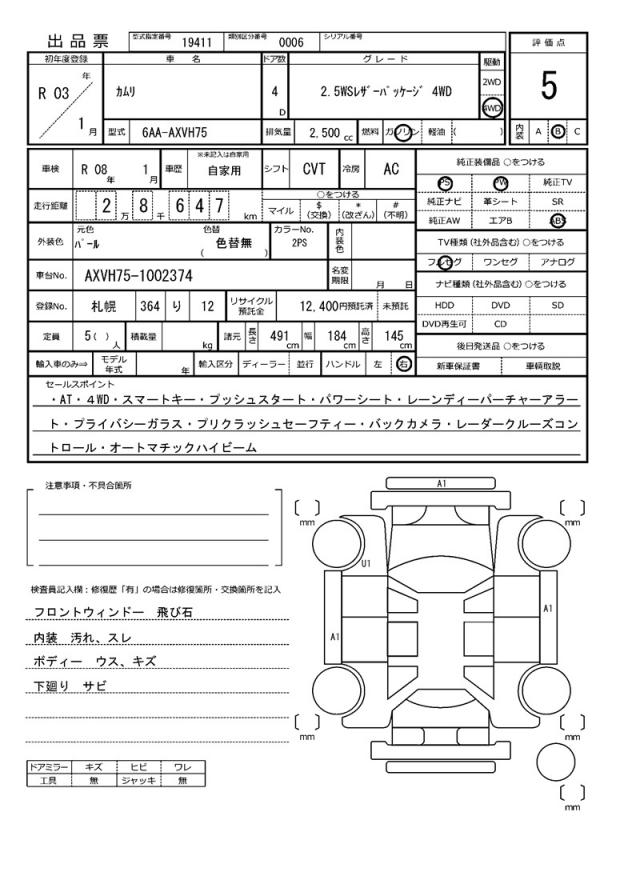 出品票
型式指定番号 19411 類別区分番号 0006 シリアル番号
初年度登録 車名 ドア数 グレード 駆動 評価点
R 03 年 1 月 カムリ 4 D 2.5WSレザーパッケージ 4WD 2WD 4WD 5
型式 6AA-AXVH75 排気量 2,500 cc 燃料 ガソリン 軽油 ( ) 内装 A B C
車検 R 08 年 1 月 車歴 ※未記入は自家用 自家用 シフト CVT 冷房 AC
走行距離 2 万 8 千 6 4 7 km ○をつける マイル $ (交換) * (改ざん) # (不明)
外装色 元色 パール 色替 ( 色替無 ) カラーNo. 2PS 内装色
車台No. AXVH75-1002374 名変期限 月 日
登録No. 札幌 364 り 12 リサイクル預託金 12,400円預託済 未預託
定員 5( ) 人 積載量 kg 諸元 長さ 491 cm 幅 184 cm 高さ 145 cm
輸入車のみ⇒ モデル年式 年 輸入区分 ディーラー 並行 ハンドル 左 右
純正装備品 ○をつける
PS PW 純正TV
純正ナビ 革シート SR
純正AW エアB ABS
TV種類 (社外品含む) ○をつける
フルセグ ワンセグ アナログ
ナビ種類 (社外品含む) ○をつける
HDD DVD SD
DVD再生可 CD
後日発送品 ○をつける
新車保証書 車輌取説
セールスポイント
・AT・4WD・スマートキー・プッシュスタート・パワーシート・レーンディーパーチャーアラー
ト・プライバシーガラス・プリクラッシュセーフティー・バックカメラ・レーダークルーズコン
トロール・オートマチックハイビーム
注意事項・不具合箇所
検査員記入欄：修復歴「有」の場合は修復箇所・交換箇所を記入
フロントウィンドー 飛び石
内装 汚れ、スレ
ボディー ウス、キズ
下廻り サビ
ドアミラー キズ ヒビ ワレ
工具 無 ジャッキ 無
A1
mm
mm
U1
A1
A1
mm
mm
mm